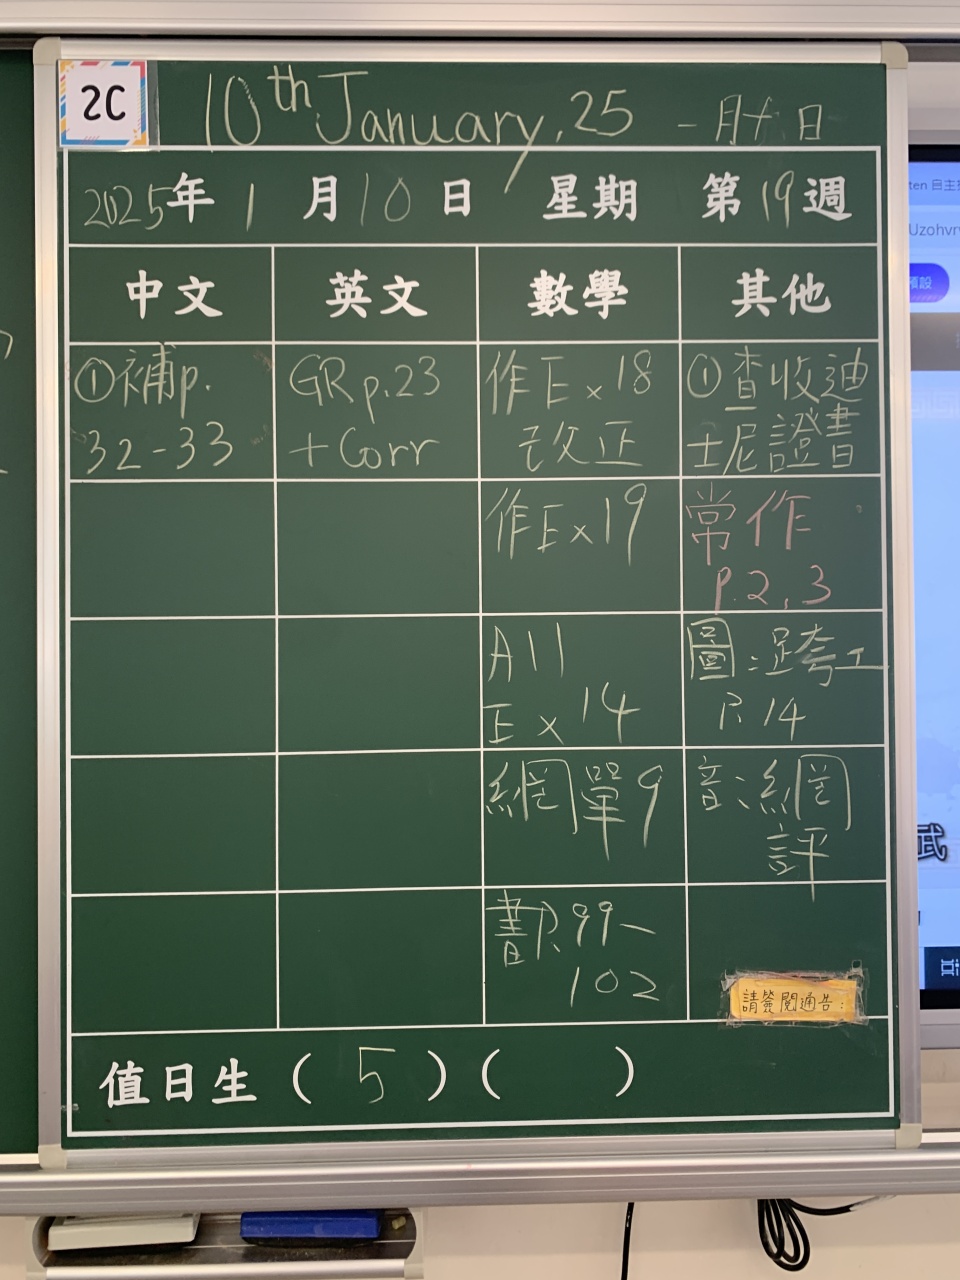 2C
10th January, 25 一月十日
2025年1月10日 星期 第19週
中文 英文 數學 其他
①補p.
32-33
GR p.23
+Corr
作Ex18
改正
①查收迪
士尼證書
作Ex19
常作
P.2,3
A11
Ex14
圖:跨工
P.14
網單9
音:網
評
書P.99~
102
請簽閱通告:
值日生(5)( )
ten 自主
Uzohvr
預設